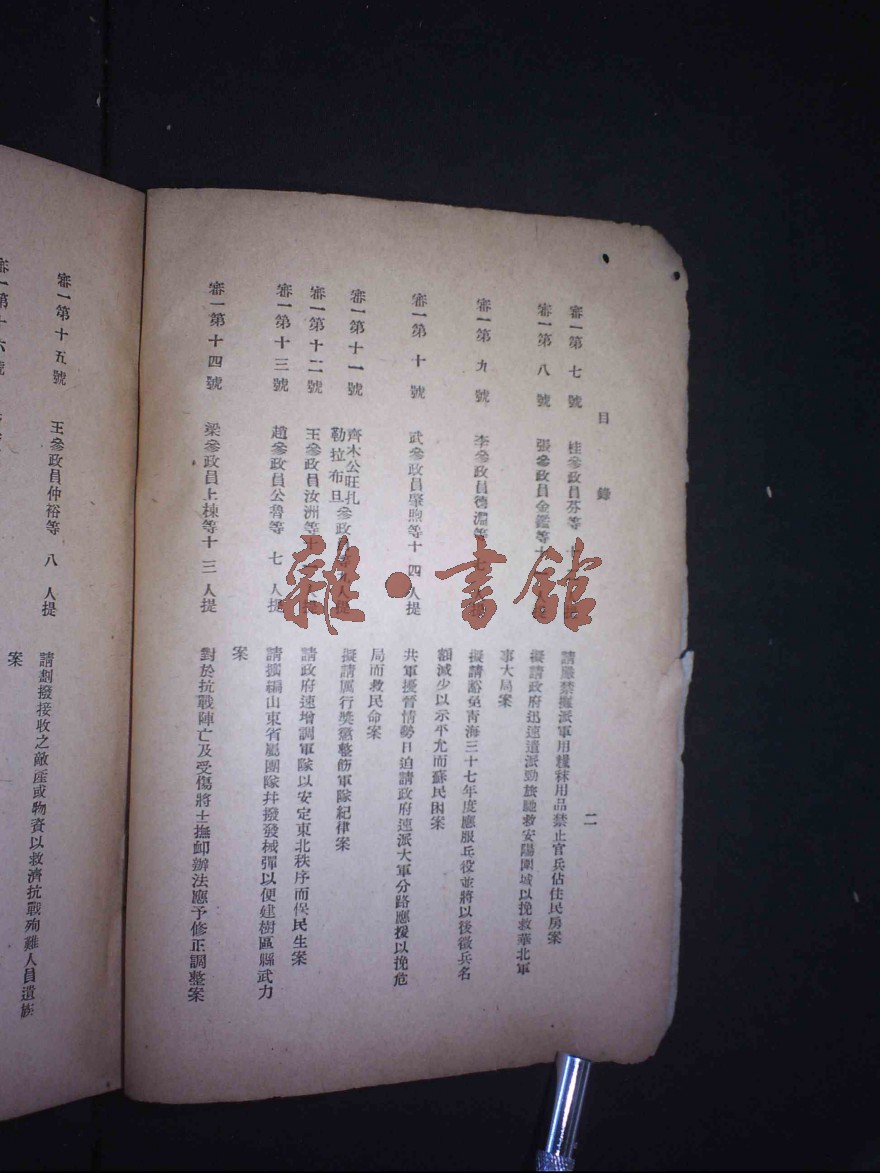 目錄
二
審一第七號 桂參政員芬等十 請嚴禁攤派軍用糧秣用品禁止官兵佔住民房案
審一第八號 張參政員金鑑等十 擬請政府迅速遣派勁旅馳救安陽圍城以挽救華北軍
事大局案
審一第九號 李參政員德淵等七 擬請豁免青海三十七年度應服兵役並將以後徵兵名
額減少以示平允而蘇民困案
審一第十號 武參政員肇煦等十四人提 共軍擾晉情勢日迫請政府速派大軍分路應援以挽危
局而救民命案
審一第十一號 齊木公旺扎勒拉布旦參政員等 人提 擬請厲行獎懲整飭軍隊紀律案
審一第十二號 王參政員汝洲等十 人提 請政府速增調軍隊以安定東北秩序而保民生案
審一第十三號 趙參政員公魯等七人提 請擴編山東省屬團隊并撥發械彈以便建樹區縣武力
案
審一第十四號 梁參政員上棟等十三人提 對於抗戰陣亡及受傷將士撫卹辦法應予修正調整案
審一第十五號 王參政員仲裕等八人提 請劃撥接收之敵產或物資以救濟抗戰殉難人員遺族
案
審一第十六號
雜·書館